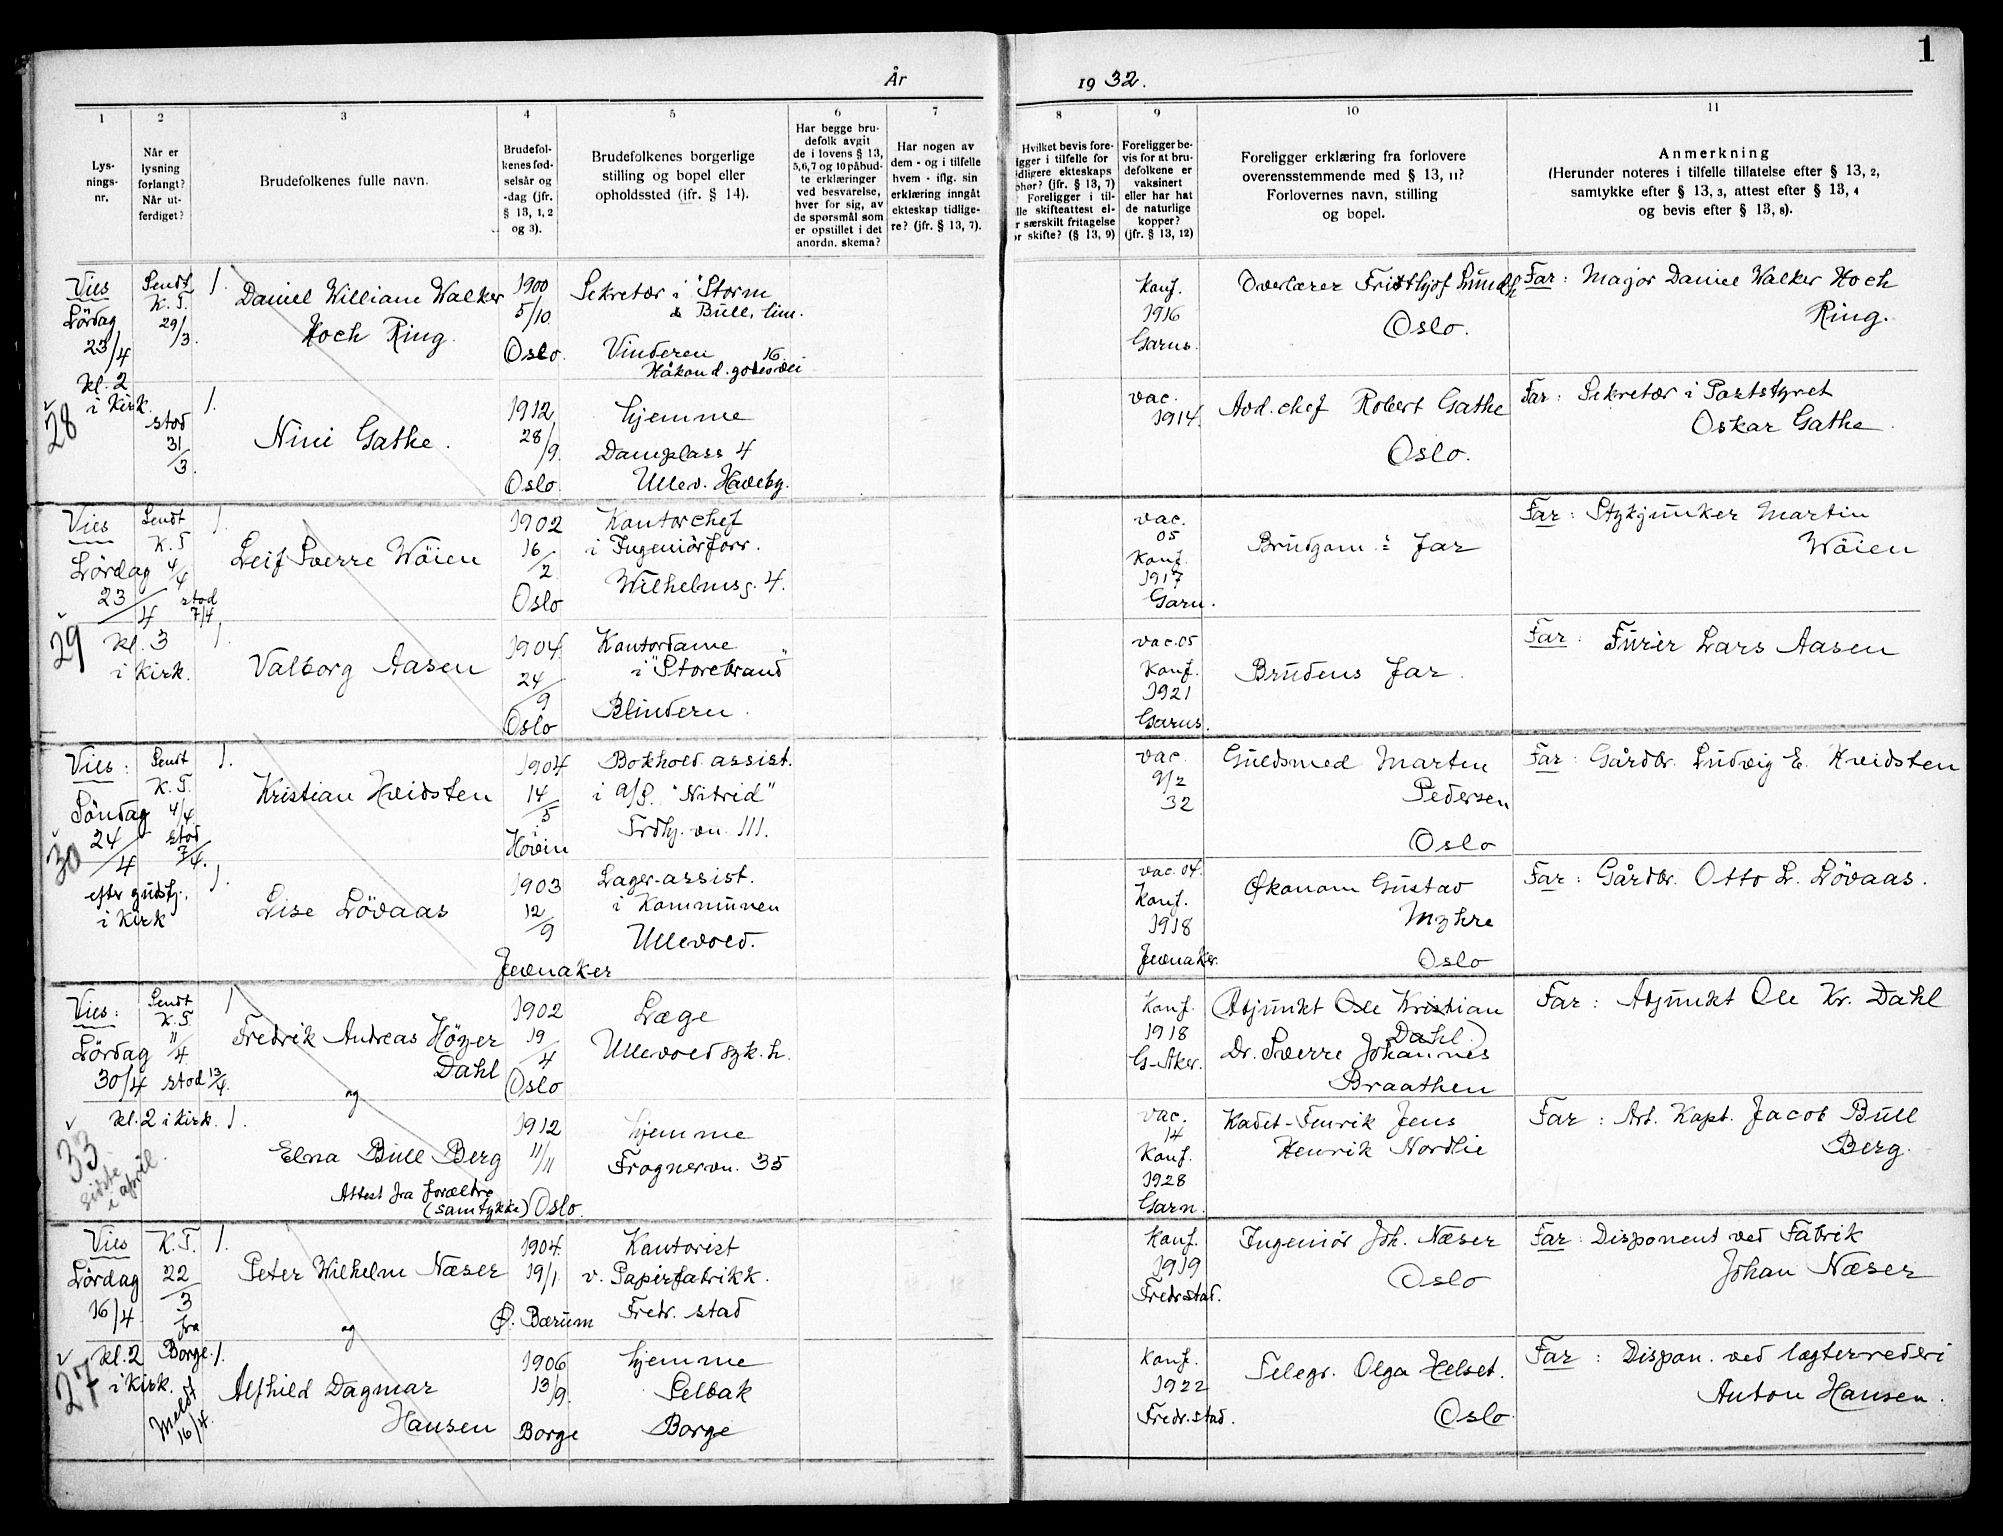 1
År
19 32.
1
Lys-
nings-
nr.
2
Når er
lysning
forlangt?
Når ut-
ferdiget?
3
Brudefolkenes fulle navn.
4
Brudefol-
kenes fød-
selsår og
-dag (jfr.
§ 13, 1, 2
og 3).
5
Brudefolkenes borgerlige
stilling og bopel eller
opholdssted (jfr. § 14).
6
Har begge bru-
defolk avgit
de i lovens § 13,
5,6,7 og 10 påbud-
te erklæringer
ved besvarelse,
hver for sig, av
de spørsmål som
er opstillet i det
anordn. skema?
7
Har nogen av
dem - og i tilfelle
hvem - iflg. sin
erklæring inngått
ekteskap tidlige-
re? (jfr. § 13, 7).
8
Hvilket bevis fore-
igger i tilfelle for
idligere ekteskaps
phør? (jfr. § 13, 7)
Foreligger i til-
lle skifteattest el-
r særskilt fritagelse
or skifte? (§ 13, 9)
9
Foreligger be-
vis for at bru-
defolkene er
vaksinert
eller har hat
de naturlige
kopper?
(jfr. § 13, 12)
10
Foreligger erklæring fra forlovere
overensstemmende med § 13, 11?
Forlovernes navn, stilling
og bopel.
11
Anmerkning
(Herunder noteres i tilfelle tillatelse efter § 13, 2,
samtykke efter § 13, 3, attest efter § 13, 4
og bevis efter § 13, 8).
Vies
Lördag
23/4
kl. 2
i Kirk.
28
Sendt
K.T.
29/3.
1.
Daniel William Walker
Hoch Ring.
1900
5/10
Oslo.
Sekretær i "Storm
& Bull, lim.
Vinderen 16.
Håkon d. godesvei
Konf.
1916
Garns.
Overlærer Fridthjof Lundh
Oslo.
Far: Major Daniel Walker Hoch
Ring.
stod
31/3.
1.
Nini Gathe.
1912
28/9.
Oslo.
hjemme
Damplass 4
Ullev. Haveby.
vac.
1914.
Avd. chef Robert Gathe
Oslo.
Far: Sekretær i Poststyret
Oskar Gathe.
Vies
Lördag
23/4
kl. 3
i Kirk.
29
Sendt
K.T
4/4
stod
7/4
1.
Leif Sverre Wöien
1902
16/2
Oslo
Kontorchef
i Ingeniörforr.
Wilhelmsg. 4.
vac.
05
Konf.
1917
Garn.
Brudgom.s far
Far: Stykjunker Martin
Wöien
1.
Valborg Aasen
1904.
24/9
Oslo
Kontordame
i "Storebrand"
Blindern.
vac. 05
Konf.
1921
Garns.
Brudens far.
Far: Furer Lars Aasen
Vies:
Söndag
24/4
efter gudstj.
i Kirk
30
Sendt
K.T.
4/4.
stod
7/4.
1.
Kristian Hvidsten
1904
14/5
Hovin
Bokhold. assist.
i A/S. "Nitrid"
Frdlj. vn. 111.
vac.
9/2
32
Guldsmed Martin
Pedersen
Oslo
Far: Gårdbr. Ludvig E. Hvidsten
1.
Lise Lövaas
1903
12/9
Jevnaker
Lager-assist.
i Kommunen
Ullevold.
vac. 04.
Konf.
1918
Jevnaker.
Økonom Gustav
Myhre
Oslo
Far: Gårdbr. Otto L. Lövaas.
Vies:
Lördag
30/4
kl. 2 i Kirk.
33
sidste
i april.
Sendt
K.T.
11/4
stod 13/4.
1
Fredrik Andreas Höyer
Dahl
og
1902
19/4
Oslo
Læge
Ullevold syk.h.
Konf.
1918
G-Aker.
(Adjunkt Ole Kristian
Dahl.)
Dr. Sverre Johannes
Braathen
Far: Adjunkt Ole Kr. Dahl
1.
Elna Bull Berg
Attest fra forældre
(samtykke)
1912
11/11
Oslo.
hjemme
Frognervn. 35
vac.
14
Konf.
1928
Garn.
Kadet-Fenrik Jens
Henrik Nordlie
Far: Art. Kapt. Jacob Bull
Berg.
Vies
Lördag
16/4
kl. 2
i Kirk.
27
K.T.
22/3
fra
Borge.
Meldt
16/4.
1.
Peter Wilhelm Næser
og
1904.
19/1.
Ø. Bærum
Kontorist
v. Papirfabrikk.
Fredr. stad
Konf.
1919
Fredrstad.
Ingeniör Joh. Næser
Oslo
Far: Disponent ved Fabrik
Johan Næser
1.
Alfhild Dagmar
Hansen
1906
13/9.
Borge
hjemme
Selbak
Borge
Konf.
1922
Fredr.stad.
Telegr. Olga Helset.
Oslo.
Far: Dispon. ved lægterrederi
Anton Hansen.